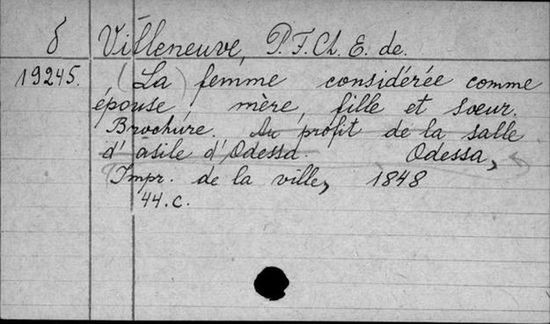 δ Villeneuve, P. F. Ch. E. de.
19245. (La) femme considérée comme
épouse, mère, fille et sœur.
Brochure. Au profit de la salle
d'asile d'Odessa. Odessa,
Impr. de la ville, 1848
44. c.